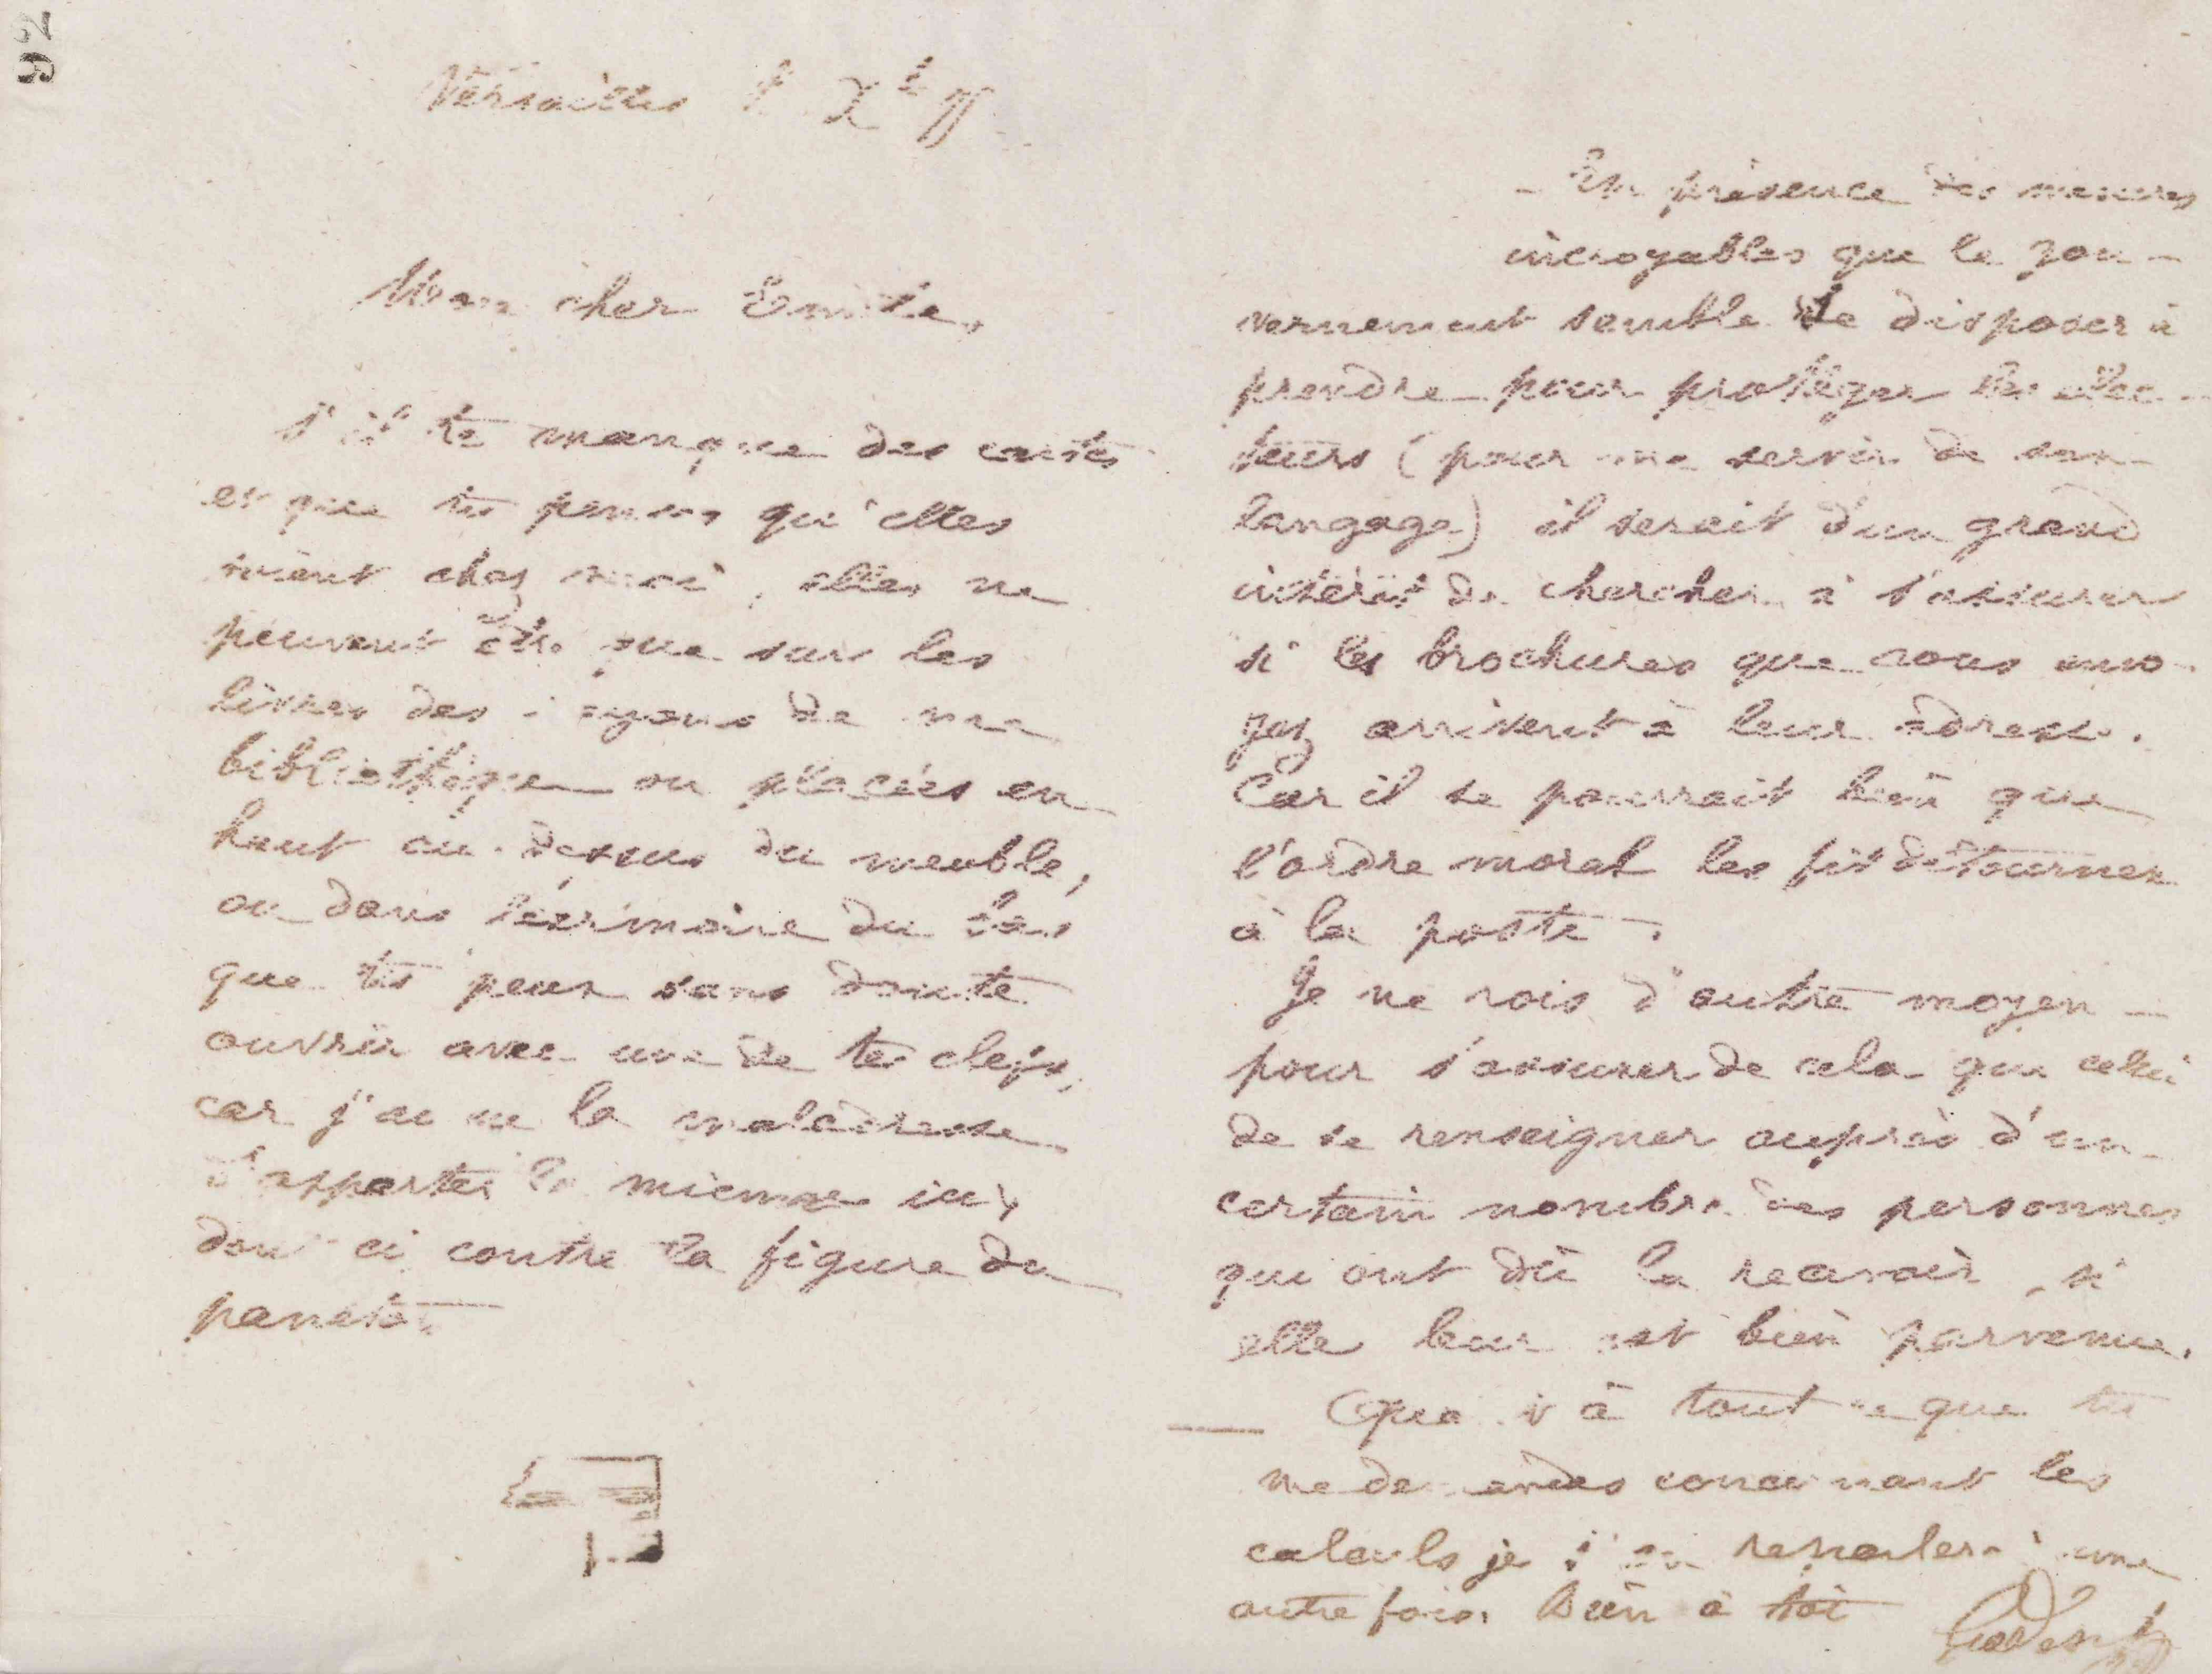 92
Versailles
Mon cher Emile,
S'il te manque des cartes
et que tu penses qu'elles
soient chez moi, elles ne
peuvent être que sur les
livres des rayons de ma
bibliothèque ou placées en
haut au-dessus du meuble,
ou dans l'armoire du bas
que tu peux sans doute
ouvrir avec une de tes clefs,
car j'ai eu la maladresse
d'apporter la mienne ici,
dont ci contre la figure du
paneton
- En présence des mesures
incroyables que le gou-
vernement semble se disposer à
prendre pour protéger les élec-
teurs (pour me servir de son
langage) il serait d'un grand
intérêt de chercher à s'assurer
si les brochures que vous envo-
yez arrivent à leur adresse.
Car il se pourrait bien que
l'ordre moral les fit détourner
à la poste.
Je ne vois d'autre moyen
pour s'assurer de cela que celui
de se renseigner auprès d'un
certain nombre des personnes
qui ont dû la recevoir, si
elle leur est bien parvenue.
Quant à tout ce que tu
me demandes concernant les
calculs je t'en reparlerai une
autre fois. Bien à toi
Godin